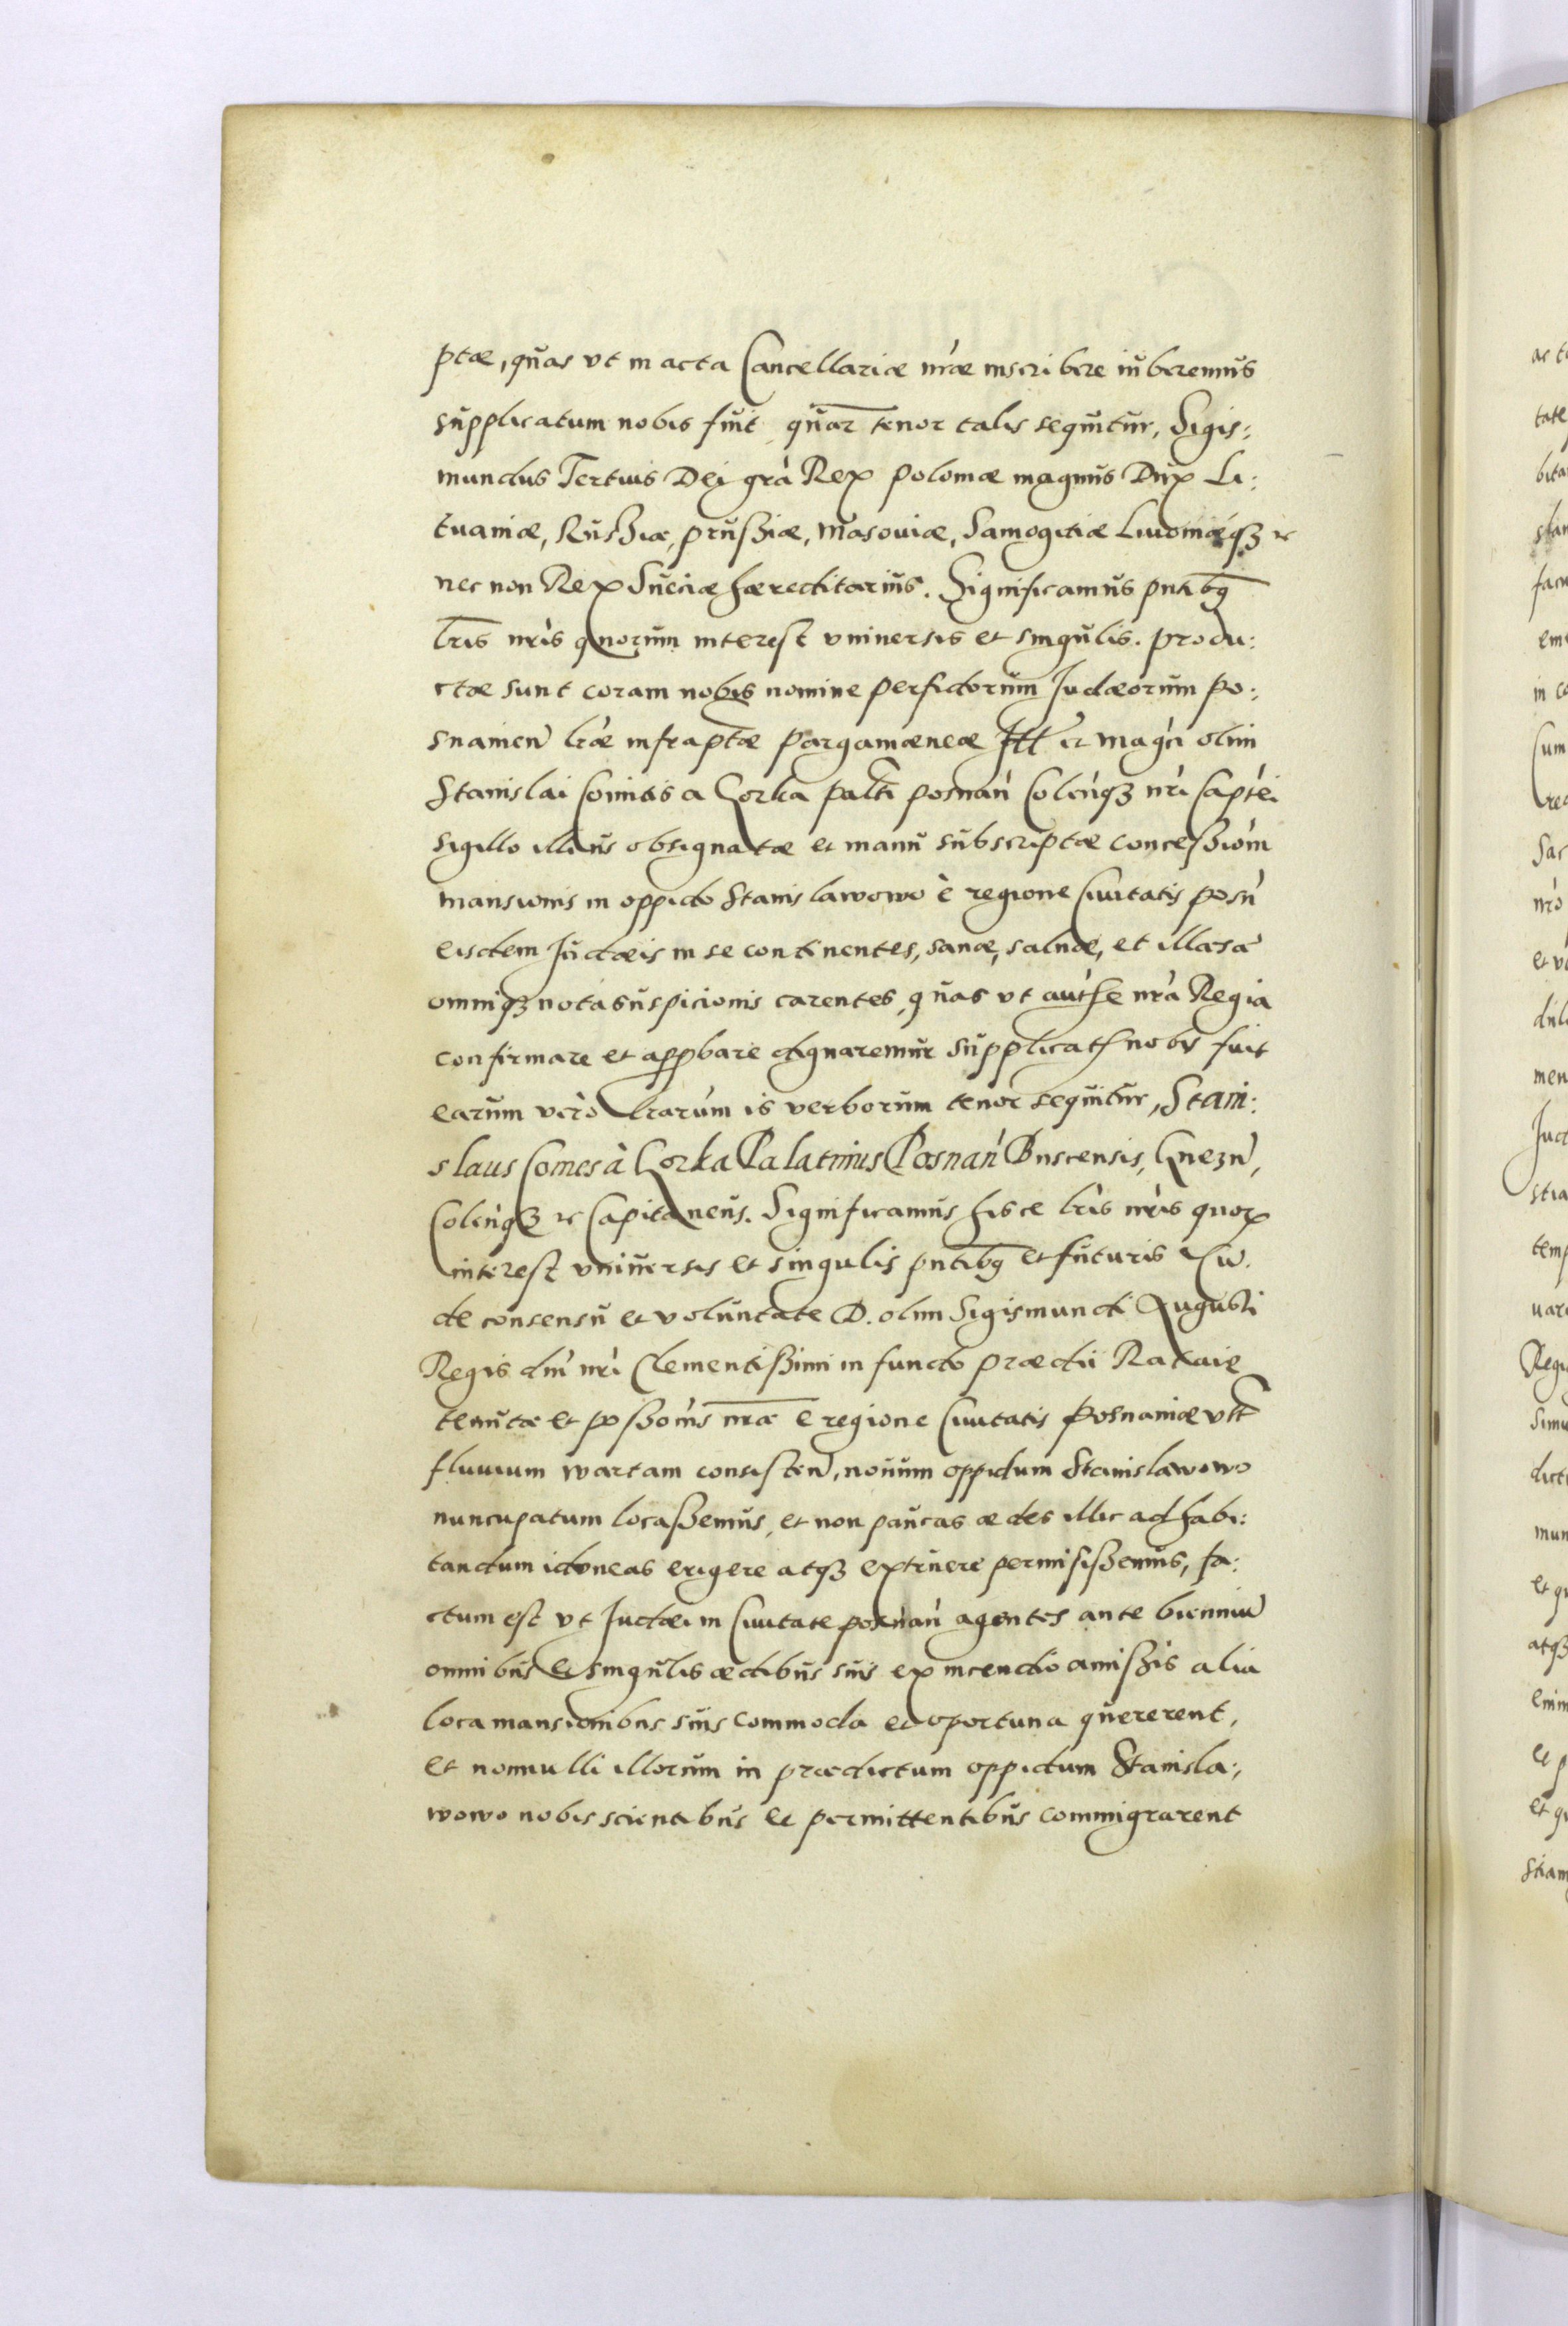 ptæ, quas vt in acta Cancellariæ nr̃æ inscribere iuberemus
supplicatum nobis fuit quar̃ tenor talis sequitur, Sigis:
mundus Tertius Dei grà Rex Poloniæ magnus Dux Li:
tuaniæ, Rußiæ, Prußiæ, Masouiæ, Samogitiæ Liuoniæqꜣ ꝛc
nec non Rex Sueciæ hæreditarius. Significamus pn̄tibꝗ
lr̄is nr̀is quorum interest vniuersis et singulis. produ:
ctæ sunt coram nobis nomine perfidorum Judæorum Po:
snanien̄ lr̀æ infraptæ Pargamæneæ Ill et mag̀ci olim
Stanislai Comitis a Gorka palt̄i posnań Coleńqꜣ nr̀i Capt̀ei
sigillo illius obsignatæ et manu subscriptæ conceßiom̀
mansionis in oppido Stanislawowo è regione Ciuitatis posń
eisdem Judæis in se continentes, sanæ, saluæ, et illæsæ
omniqꜣ nota suspicionis carentes, quas vt aut̀he nr̀a Regia
confirmare et apꝓbare dignaremur supplicat̄ nobis fuit
earum verò lr̀arum is verborum tenor sequitur, Stani:
slaus Comes à Gorka Palatinus Posnań Buscensis, Gnezń,
Coleńqꜣ ꝛc Capitaneus. Significamus hisce lr̀is nr̀is quoꝝ
interest vniuersis et singulis pn̄tibꝗ et futuris Cū.
de consensu et voluntate D. olim Sigismundi Augusti
Regis dn̄i nr̀i Clementißimi in fundo prædii Rataie
tenutæ et poßom̀is nr̄æ e regione Ciuitatis Posnaniæ vlt̄
fluuium wartam consisteń, nouum oppidum Stanislawowo
nuncupatum locaßemus, et non paucas ædes illic ad habi:
tandum idoneas erigere atqꜣ extruere permisißemus, fa:
ctum est vt Judæi in Ciuitate posnań agentes ante bienniū
omnibus et singulis ædibus suis ex incendio amißis alia
loca mansionibus suis commoda et oportuna quererent,
et nonnulli illorum in prædictum oppidum Stanisla:
wowo nobis scientibus et permittentibus commigrarent